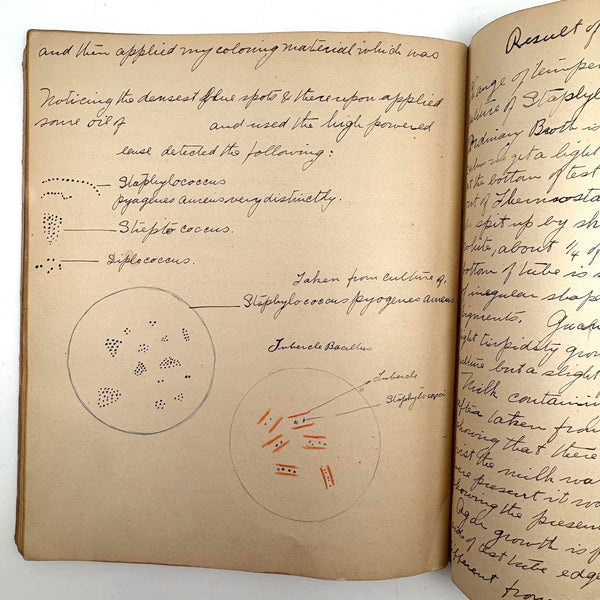 and then applied my coloring material which was
Noticing the densest blue spots & thereupon applied
some oil of and used the high powered
lense detected the following:
Staphylococcus
pyagenes aureus very distinctly.
Strepto coccus.
Diplococcus.
Taken from culture of.
Staphylococcus pyogenes aureus
Tubercle Bacillus
Tubercle
Result of
Change of temper
culture of Staphyl
Ordinary Broth is
get a light
at the bottom of test
out of Thermosta
spit up by sh
about 1/4 of
bottom of tube is s
of irregular shap
pigments. Quar
light turpidity grow
culture but a slight
Milk containin
after taken from
showing that there
the milk wa
were present it wo
showing the presen
Agar growth is p
of test tube edge
different from